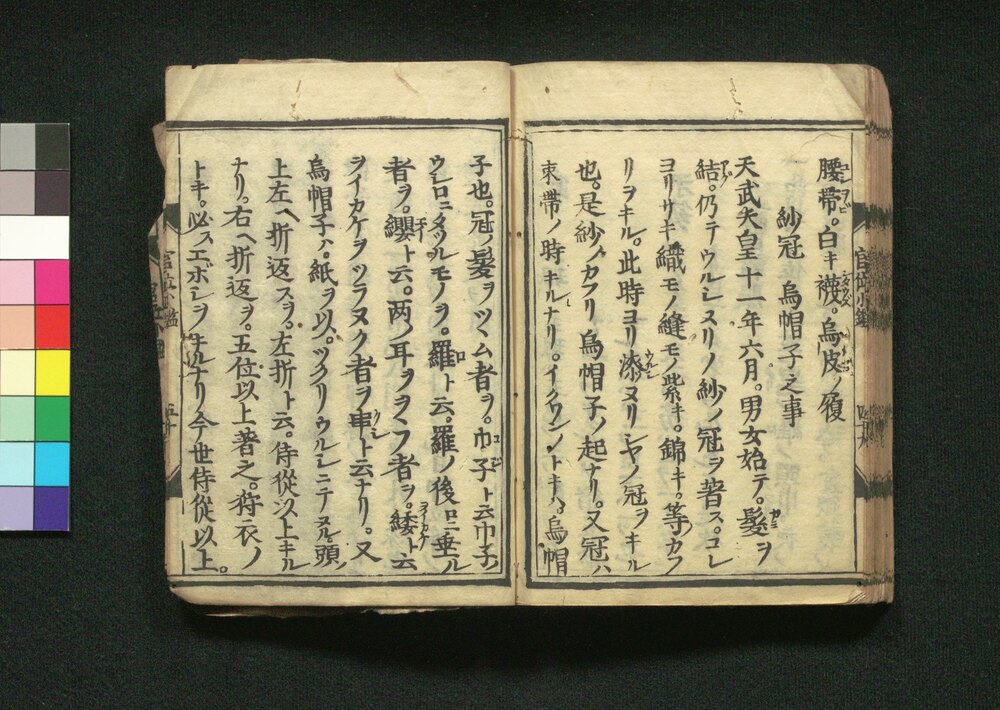 腰帯。白キ襪。烏皮ノ履
紗冠 烏帽子之事
天武天皇十一年六月。男女始テ。髮ヲ
結。仍テウルシヌリノ紗ノ冠ヲ著ス。コレ
ヨリサキ織モノ縫モノ紫キ。錦キ。等カフ
リヲキル。此時ヨリ漆ヌリシヤノ冠ヲキル
也。是紗ノカフリ烏帽子ノ起ナリ。又冠ハ
束帶ノ時キルナリ。イクワンノトキハ烏帽
子也。冠ノ髮ヲツヽム者ヲ。巾子ト云巾子ノ
ウシロニタツルモノヲ。羅ト云。羅ノ後ロニ垂ル
者ヲ。纓ト云。两ノ耳ヲヲフ者ヲ。緌ト云
ヲイカケヲツラヌク者ヲ串ト云ナリ。又
烏帽子ハ紙ヲ以。ツクリウルシニテヌル頭ノ
上左ヘ折返スヲ。左折ト云。侍從以上キル
ナリ。右ヘ折返ヲ。五位以上著之。狩衣ノ
トキ。必スエボシヲキルナリ今世侍從以上。